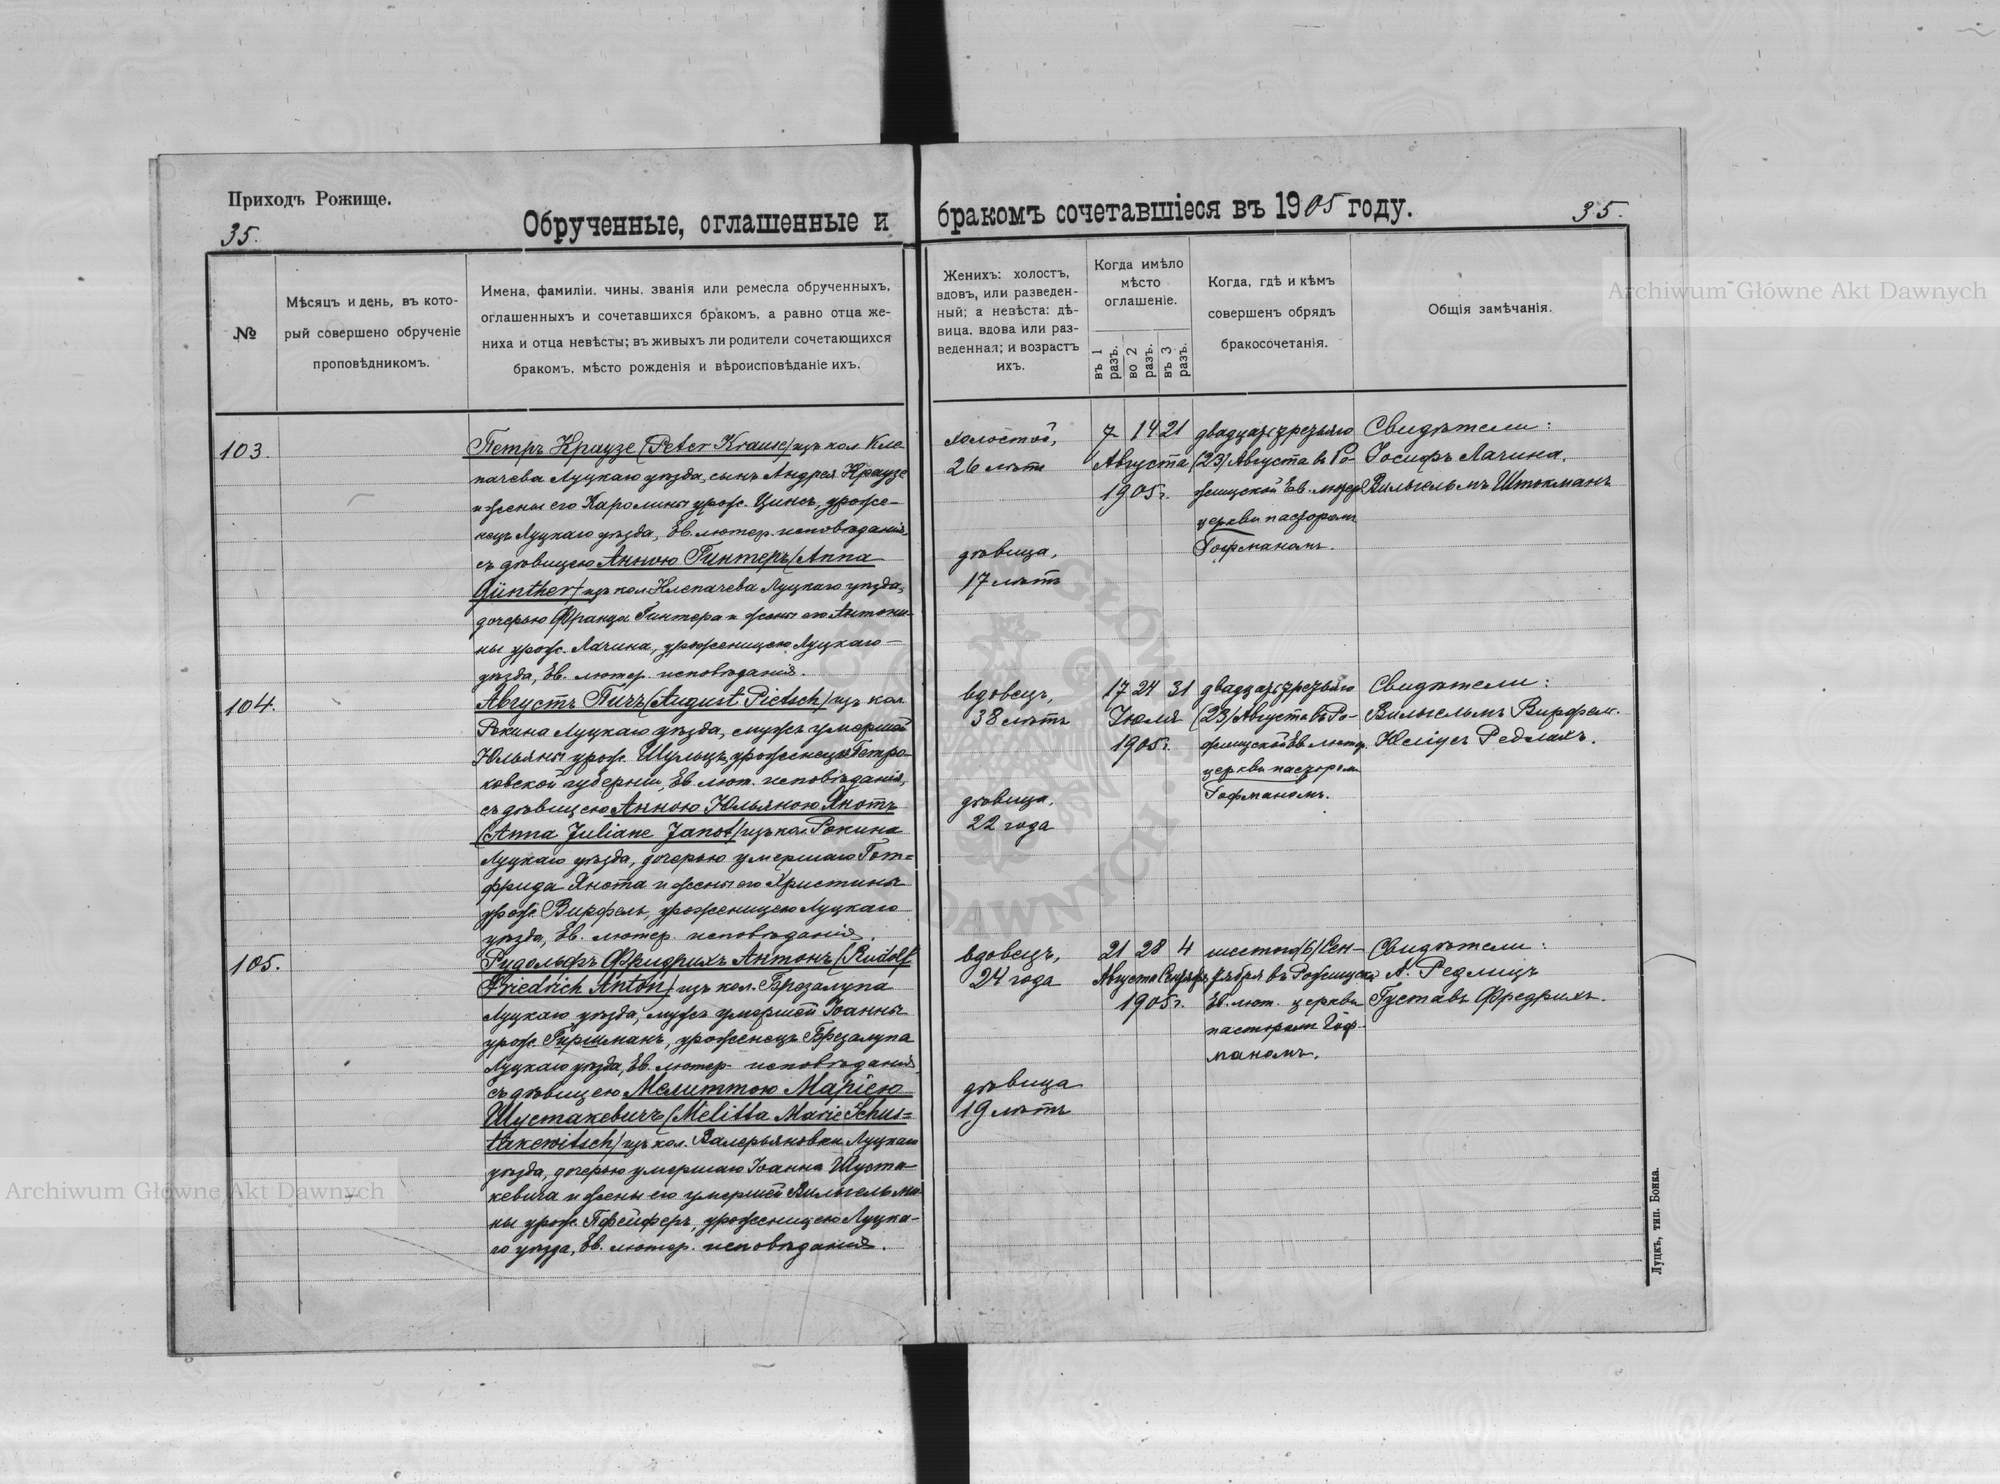 Приходъ Рожище.
35.
Обрученные, оглашенные и
бракомъ сочетавшіеся въ 1905 году.
35.
№
Мѣсяцъ и день, въ кото-
рый совершено обрученіе
проповѣдникомъ.
Имена, фамиліи, чины, званія или ремесла обрученныхъ,
оглашенныхъ и сочетавшихся бракомъ, а равно отца же-
ниха и отца невѣсты; въ живыхъ ли родители сочетающихся
бракомъ, мѣсто рожденія и вѣроисповѣданіе ихъ.
Женихъ: холостъ,
вдовъ, или разведен-
ный; а невѣста: дѣ-
вица, вдова или раз-
веденная; и возрастъ
ихъ.
Когда имѣло
мѣсто
оглашеніе.
въ 1 разъ.
во 2 разъ.
въ 3 разъ.
Когда, гдѣ и кѣмъ
совершенъ обрядъ
бракосочетанія.
Общія замѣчанія.
103.
Петръ Краузе (Peter Krause) изъ кол. Кле-
пачева Луцкаго уѣзда, сынъ Андрея Краузе
и жены его Каролины урож. Цинсъ, уроже-
нецъ Луцкаго уѣзда, Ев. лютер. исповѣданія,
съ дѣвицею Анною Гинтеръ (Anna
Günther) изъ кол. Клепачева Луцкаго уѣзда,
дочерью Франца Гинтера и жены его Антони-
ны урож. Лачина, уроженицею Луцкаго
уѣзда, Ев. лютер. исповѣданія.
холостой,
26 лѣтъ
дѣвица,
17 лѣтъ
7 14 21
Августа
1905 г.
двадцать третьяго
(23) Августа въ Ро-
жищской Ев. лютер.
церкви пасторомъ
Гофманомъ.
Свидѣтели:
Іосифъ Лачина.
Вильгельмъ Штокманъ
104.
Августъ Пичъ (August Pietsch) изъ кол.
Рокина Луцкаго уѣзда, мужъ умершей
Юльяны урож. Шульцъ, уроженецъ Петро-
ковской губерніи, Ев. лют. исповѣданія,
съ дѣвицею Анною Юльяною Янотъ
(Anna Juliane Janot) изъ кол. Рокина
Луцкаго уѣзда, дочерью умершаго Гот-
фрида Янота и жены его Христины
урож. Вирфель, уроженицею Луцкаго
уѣзда, Ев. лютер. исповѣданія.
вдовецъ,
38 лѣтъ
дѣвица,
22 года
17 24 31
Іюля
1905 г.
двадцать третьяго
(23) Августа въ Ро-
жищской Ев. лютер.
церкви пасторомъ
Гофманомъ.
Свидѣтели:
Вильгельмъ Вирфел.
Юліусъ Редлахъ.
105.
Рудольфъ Фридрихъ Антонъ (Rudolf
Friedrich Anton) изъ кол. Брезалупа
Луцкаго уѣзда, мужъ умершей Іоанны
урож. Гиршманъ, уроженецъ Брезалупа
Луцкаго уѣзда, Ев. лютер. исповѣданія
съ дѣвицею Мелиттою Маріею
Шустакевичъ (Melitta Marie Schus=
takewitsch) изъ кол. Валерьяновки Луцкаго
уѣзда, дочерью умершаго Іоанна Шуста-
кевича и жены его умершей Вильгельми-
ны урож. Пфейферъ, уроженицею Луцка-
го уѣзда, Ев. лютер. исповѣданія.
вдовецъ,
24 года
дѣвица
19 лѣтъ
21 28 4
Августа Сентября
1905 г.
шестого (6) Сен-
тября въ Рожищской
Ев. лют. церкви
пасторомъ Гоф-
маномъ.
Свидѣтели:
А. Редлицъ
Густавъ Фредрихъ.
Луцкъ, тип. Бонка.
Archiwum Główne Akt Dawnych
Archiwum Główne Akt Dawnych